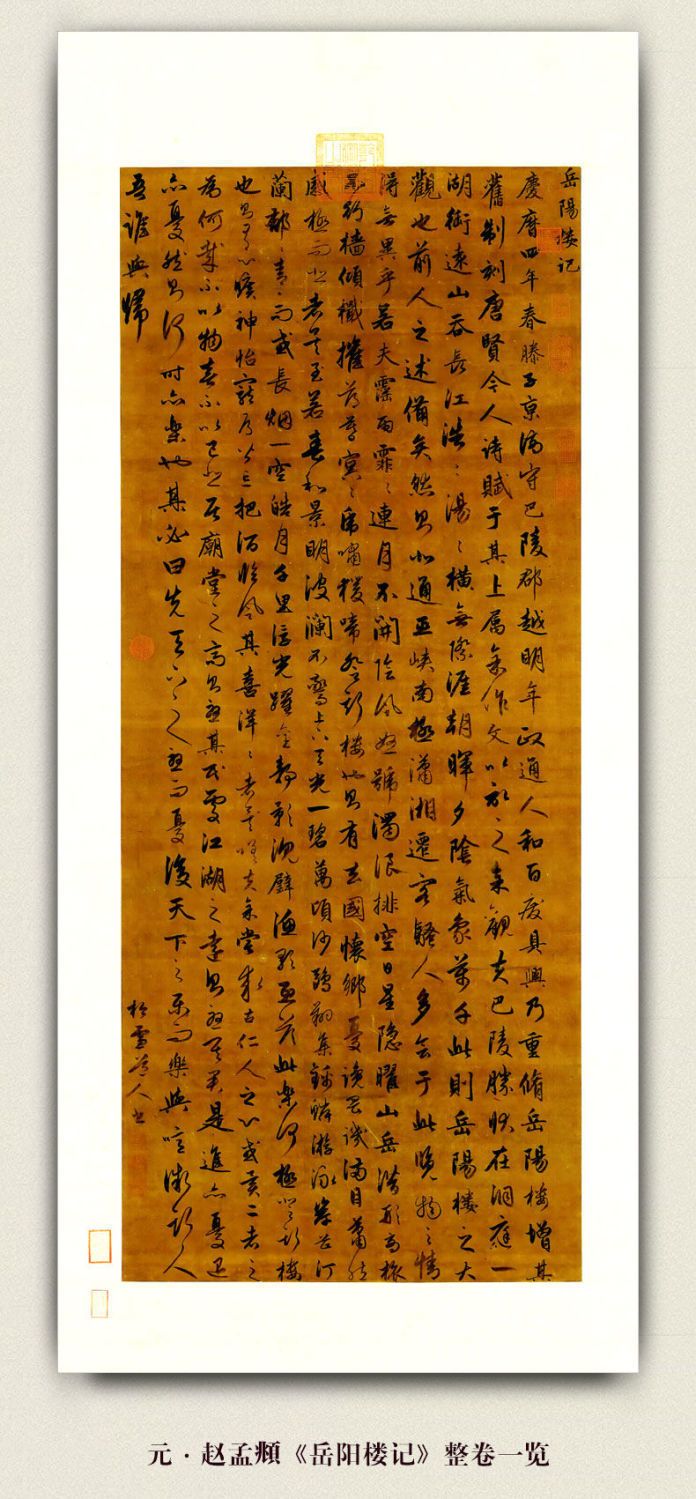 岳陽楼记
慶曆四年春滕子京谪守巴陵郡越明年政通人和百废具興乃重脩岳陽樓增其
舊制刻唐賢今人詩賦于其上属余作文以記之余觀夫巴陵勝状在洞庭一
湖銜遠山吞長江浩〻湯〻橫無際涯朝暉夕陰氣象萬千此則岳陽楼之大
觀也前人之述備矣然則北通巫峽南極瀟湘遷客騷人多会于此览物之情
得無異乎若夫霪雨霏〻連月不開陰風怒號濁浪排空日星隐曜山岳潜形商旅
不行檣傾檝摧薄暮冥〻虎嘯猨啼登斯楼也則有去國懷鄉憂讒畏譏满目蕭然
感極而悲者矣至若春和景明波瀾不驚上下天光一碧萬頃沙鷗翔集錦鱗游泳岸芷汀
蘭郁〻青〻而或長烟一空皓月千里浮光躍金静影沉璧漁歌互答此樂何極登斯樓
也則有心曠神怡寵辱皆忘把酒臨風其喜洋〻者矣嗟夫余嘗求古仁人之心或異二者之
為何哉不以物喜不以己悲居廟堂之高則憂其民處江湖之遠則憂其君是進亦憂退
亦憂然則何時亦樂也其必曰先天下之憂而憂後天下之樂而樂與噫微斯人
吾誰與歸
松雪道人书
元·赵孟頫《岳阳楼记》整卷一览